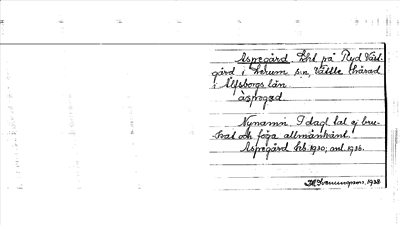 Aspegård. Lht på Ryd Väst-
gård i Lerum sn, Vättle härad
i Älfsborgs län
àspegɑd.
Nynamn. I dagl. tal ej bru-
kat och föga allmänkänt.
Aspegård hfs. 1930; ml. 1936.
1938